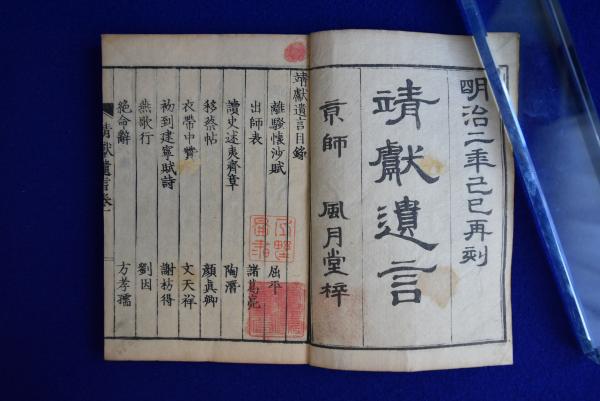 明治二年己巳再刻
靖獻遺言
京師 風月堂梓
靖獻遺言目錄
離騷懷沙賦 屈平
出師表 諸葛亮
讀史述夷齊章 陶潛
移蔡帖 顏真卿
衣帶中贊 文天祥
初到建寧賦詩 謝枋得
燕歌行 劉因
絶命辭 方孝孺
靖獻遺言卷一